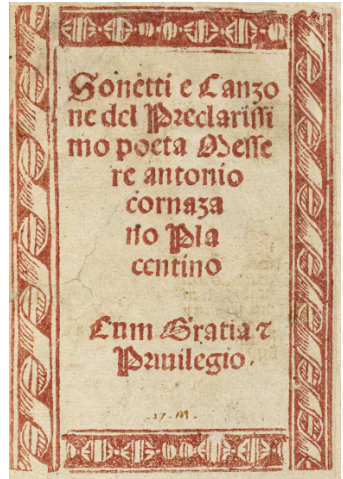 Sonetti e Canzo
ne del Preclarissi
mo poeta Messe
re antonio
cornaza
no Pla
centino
Cum Gratia ⁊
Priuilegio.
.17.M.